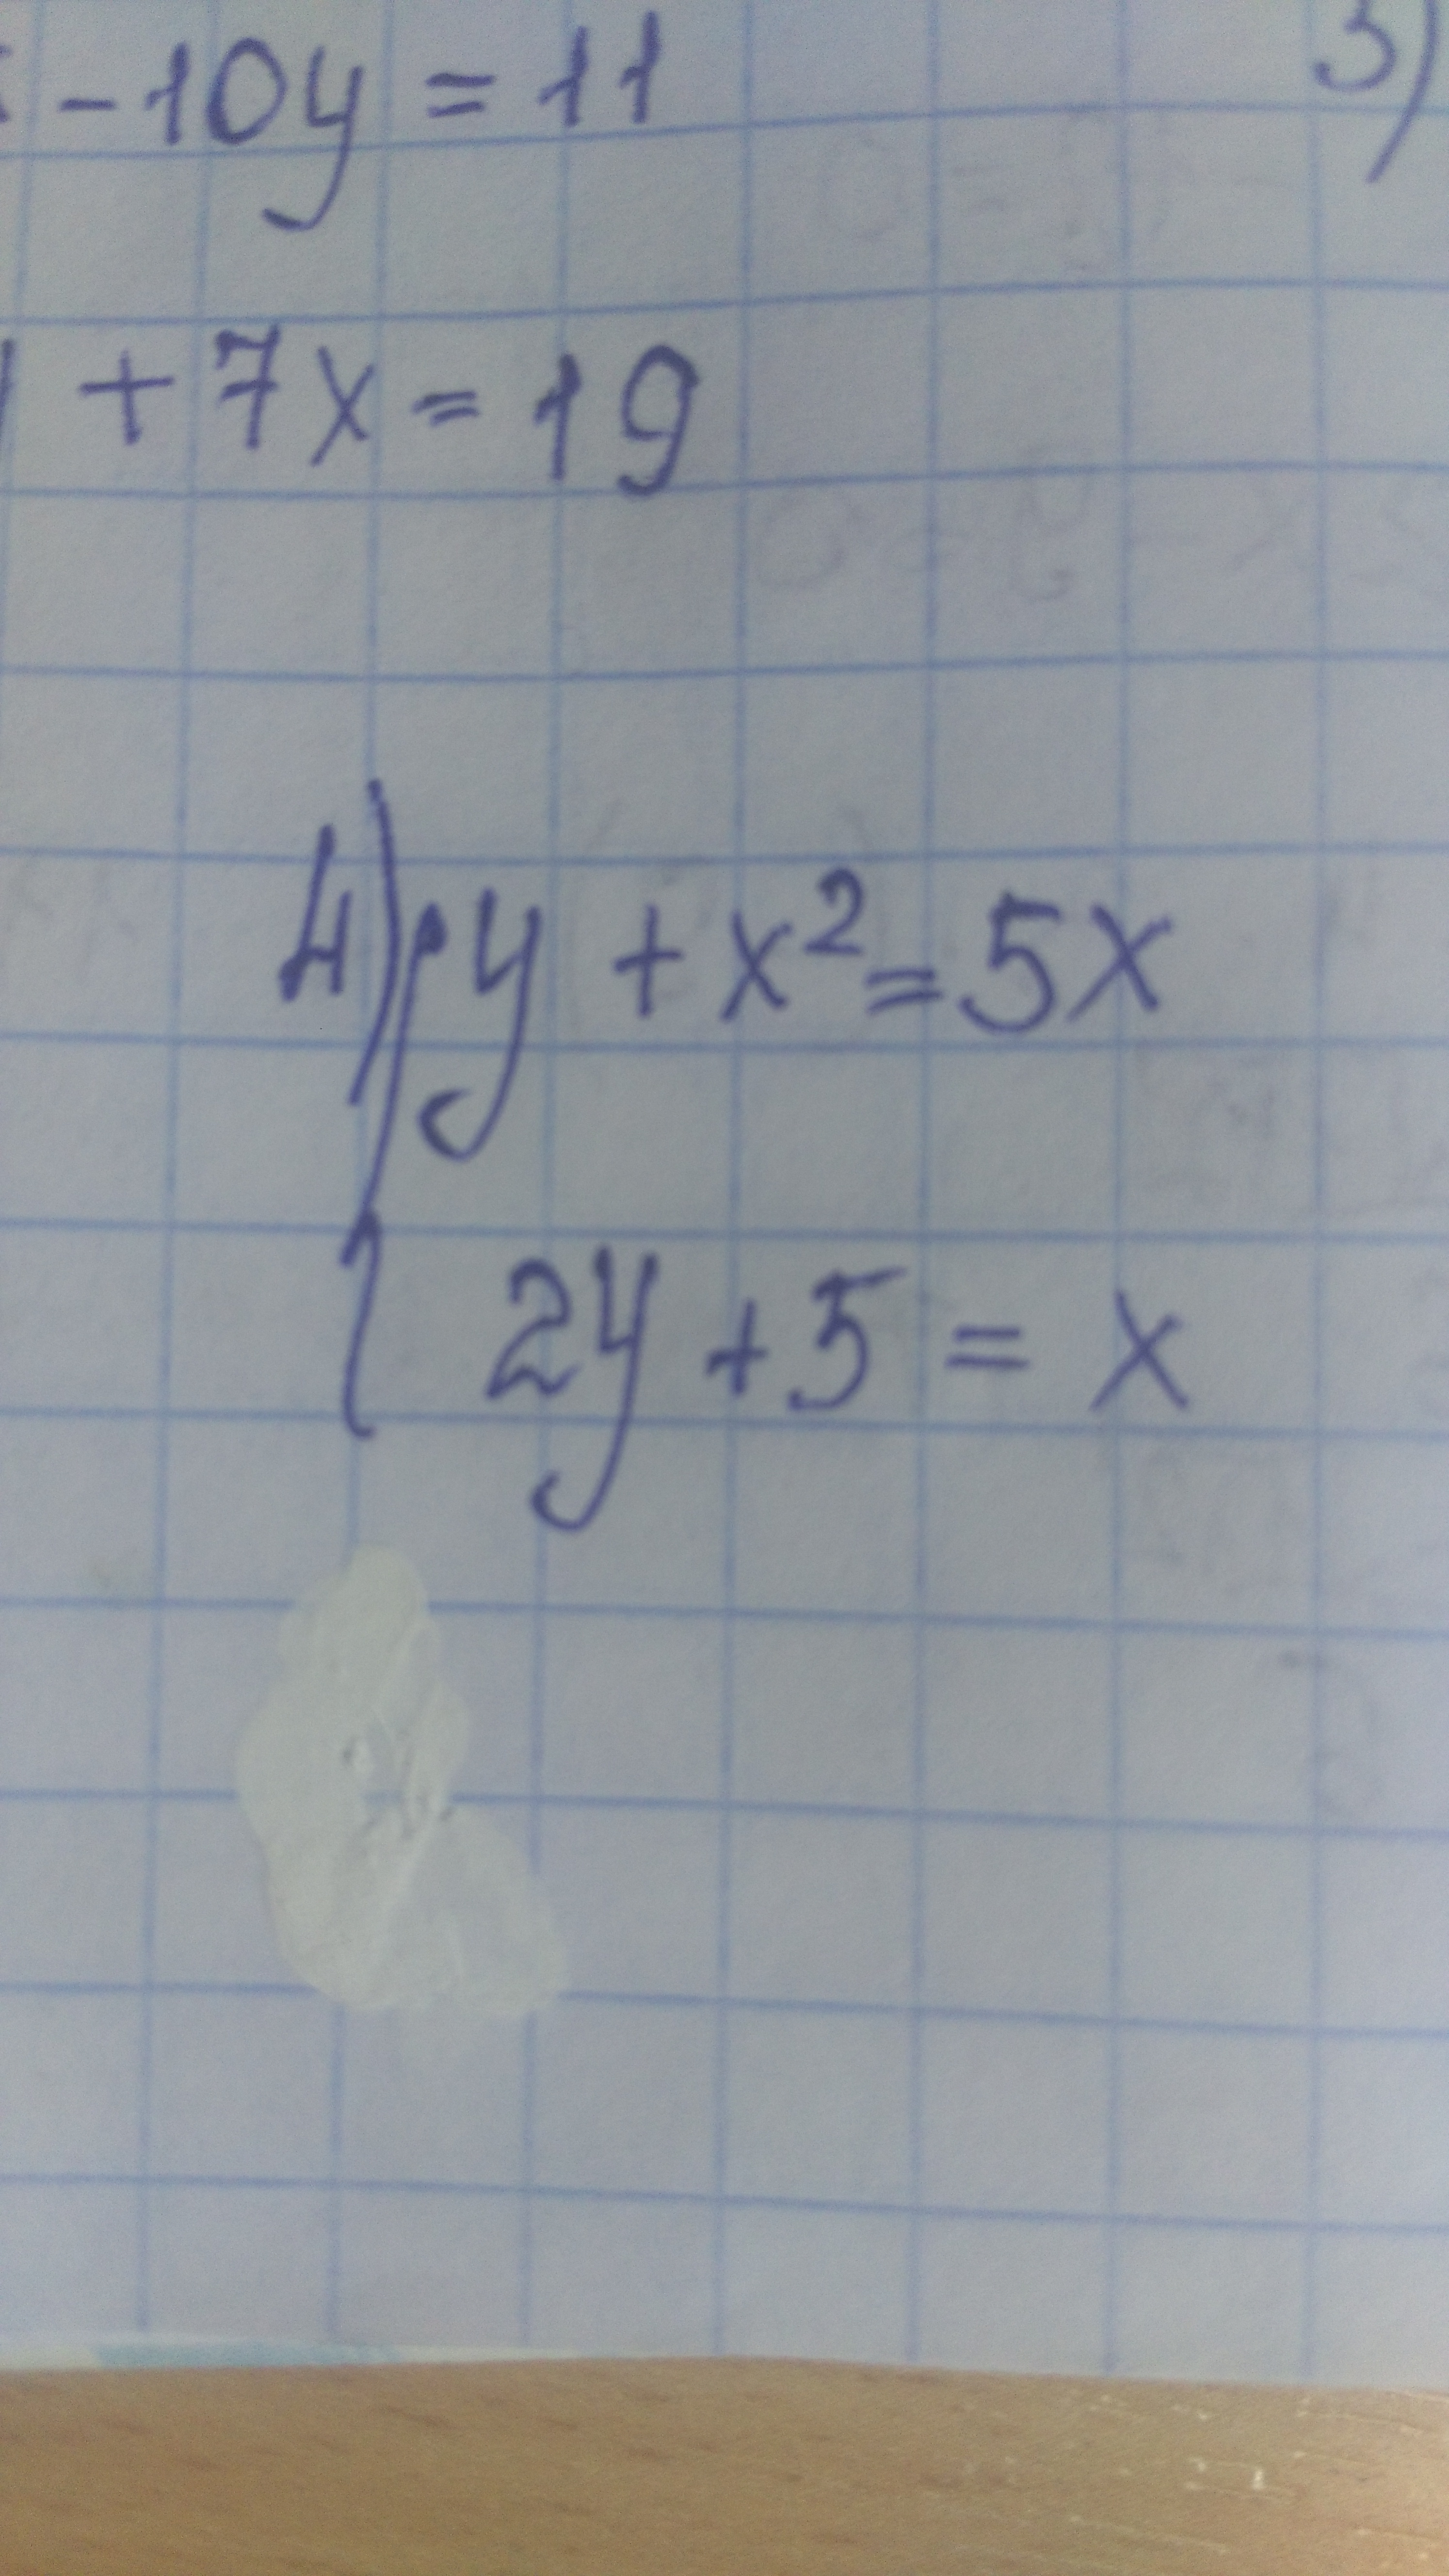 - 10y = 11
3)
+ 7x = 19
4) y + x² = 5x
2y + 5 = x